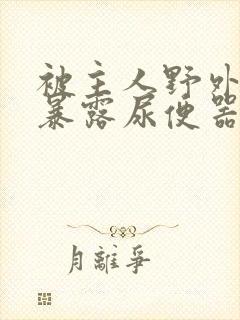 被主人野外
暴露尿便器
月離爭